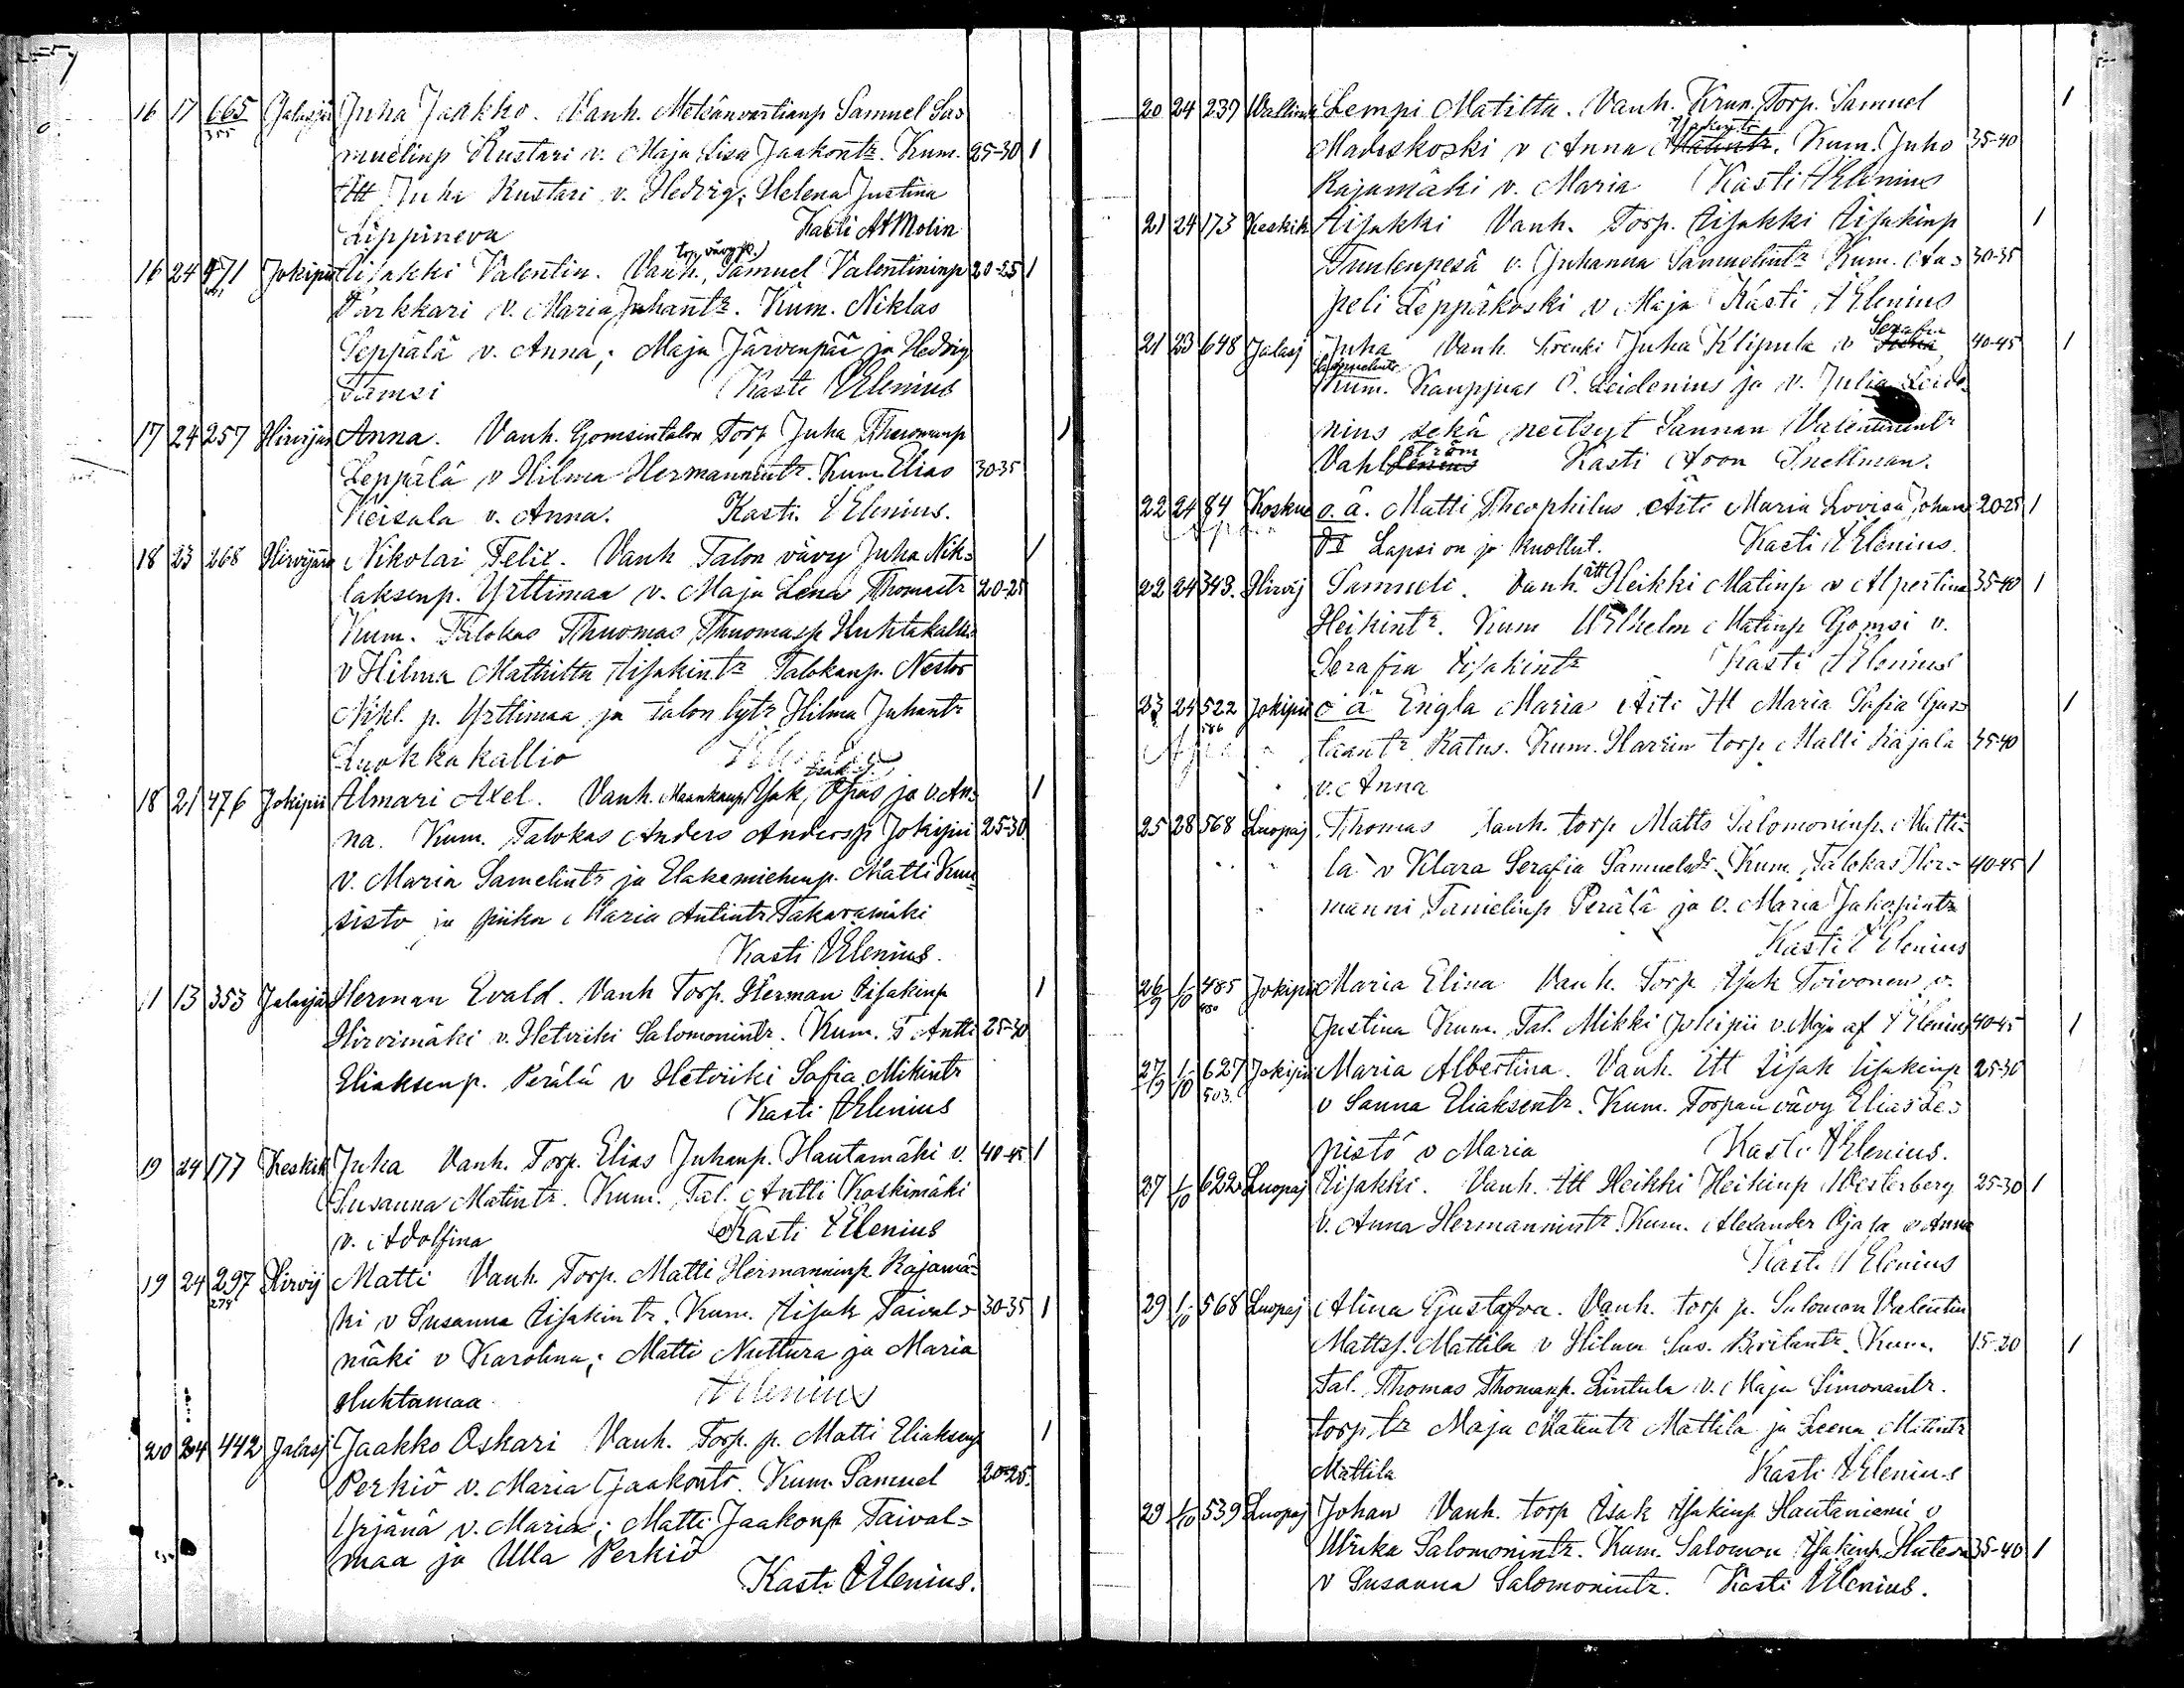 16 17 665 Jalasjär Juha Jaakko. Vanh. Metsänvartianp Samuel Sa=
355
muelinp Rustari v. Maja Lisa Jaakontr. Kum. 25-30 1
Itt Juha Rustari v. Hedvig; Helena Justina
Lippineva Kasti AMolin
torp. vävy
16 24 571 Jokipii Iisakki Valentin. Vanh. Samuel Valentininp 20-25 1
Parkkari v. Maria Juhantr. Kum. Niklas
Seppälä v. Anna; Maja Järvenpää ja Hedvig
Tamsi Kasti AElenius
17 24 257 Hirvijär Anna. Vanh. Gomsintalon Torp Juha Thuomanp 1
Leppälä v Hilma Hermannintr. Kum Elias 30-35
Keisala v. Anna. Kasti. AElenius.
18 23 268 Hirvijärv Nikolai Felix. Vanh Talon vävy Juha Nik= 1
laksenp. Yrttimaa v. Maja Lena Thomastr 20-25
Kum. Talokas Thuomas Thuomasp Huhtakallio
v Hilma Mathilta Iisakintr Talokanp. Nestor
Nikl. p. Yrttimaa ja talon tytr Hilma Juhantr
Luokkakallio AElenius
18 21 476 Jokipii Almari Axel. Vanh. Maankaup Isak, Opas ja v. An= 1
na. Kum. Talokas Anders Andersp Jokipii 25-30
v. Maria Samelintr ja Elakemiehenp. Matti Kuu=
sisto ja piika Maria Antintr Takaramäki
Kasti AElenius.
11 13 353 Jalasjär Herman Evald. Vanh Torp. Herman Iisakinp 1
Hirvimäki v. Hetvriki Salomonintr. Kum. T Antti 25-30
Eliaksenp. Perälä v Hetvriki Sofia Mikintr
Kasti AElenius
19 24 177 Keskik Juha Vanh. Torp. Elias Juhanp. Hautamäki v. 40-45 1
Susanna Matintr. Kum. Tal. Antti Koskimäki
v. Adolfina Kasti AElenius
19 24 297 Hirvij Matti Vanh. Torp. Matti Hermanninp Rajamä=
275
ki v Susanna Iisakintr. Kum. Iisak Taival= 30-35 1
mäki v Karolina; Matti Nuttura ja Maria
Huhtamaa AElenius
20 24 442 Jalasj Jaakko Oskari Vanh. Torp. p. Matti Eliaksenp 1
Perkiö v. Maria Jaakontr. Kum. Samuel 20-25.
Yrjänä v. Maria; Matti Jaakonp Taival=
maa ja Ulla Perkiö
Kasti AElenius.
20 24 239 Wallina Lempi Matilta. Vanh. Krun. Torp. Samuel 1
Madeskoski v Anna Matintr. Kum. Juho 35-40
Rajamäki v. Maria Kasti AElenius
21 24 173 Keskik Iisakki Vanh. Torp. Iisakki Iisakinp 1
Tuulenpesä v. Juhanna Samuelintr Kum. Aa= 30-35
peli Leppäkoski v Maja Kasti AElenius
Serafia
21 23 648 Jalasj Juha Vanh Krenki Juha Klipula v Sofia 40-45 1
Kum. Kauppias O. Leidenius ja v. Julia Leide=
nius sekä neitsyt Sannan Valentinintr
ström
Vahlrenius Kasti Aron Snellman.
22 24 84 Koskue o. ä. Matti Theophilus Äiti Maria Lovisa Johan 20-25 1
Lapsi on jo kuollut. Kasti AElenius.
22 24 343. Hirvij Samueli. Vanh. itt Heikki Matinp v Alpertina 35-40 1
Heikintr. Kum Wilhelm Matinp Gomsi v.
Serafia Iisakintr Kasti AElenius
23 24 522 Jokipii o ä Engla Maria Äiti Itt Maria Sofia Gus= 1
586
taantr Ratus. Kum. Harrin torp Matti Rajala 35-40
v. Anna
25 28 568 Luopaj Thomas Vanh. torp Matts Salomoninp. Matti=
la v Klara Serafia Samuelintr. Kum. Talokas Her= 40-45 1
manni Tanielinp Perälä ja v. Maria Jakopintr
Kasti AElenius
26/9 1/10 485 Jokipii Maria Elina Vanh. Torp Isak Toivonen v.
450
Justina Kum. Tal. Mikki Jokipii v. Maja af AElenius 40-45 1
27/9 1/10 627 Jokipii Maria Albertina. Vanh. Itt Iisak Iisakinp 25-30
503.
v Sanna Eliaksentr. Kum. Torpan vävy Elias Le=
pistö v Maria Kasti AElenius.
27 1/10 622 Luopaj Iisakki. Vanh. Itt Heikki Heikinp Westerberg 25-30 1
v. Anna Hermannintr. Kum. Alexander Ojala v Anna
Kasti AElenius
29 1/10 568 Luopaj Alina Gustafva. Vanh. torp p. Salomon Valentin
Mattsp. Mattila v Hilma Kum. 15-20 1
Tal. Thomas Thomasp. Lintula v. Maja Simonantr.
torp. tr Maja Matintr Mattila ja Leena Matintr
Mattila Kasti AElenius
29 1/10 539 Luopaj Johan Vanh. torp Isak Isakinp Hautaniemi v
Ulrika Salomonintr. Kum. Salomon Isakinp. 35-40 1
v Susanna Salomonintr. Kasti AElenius.